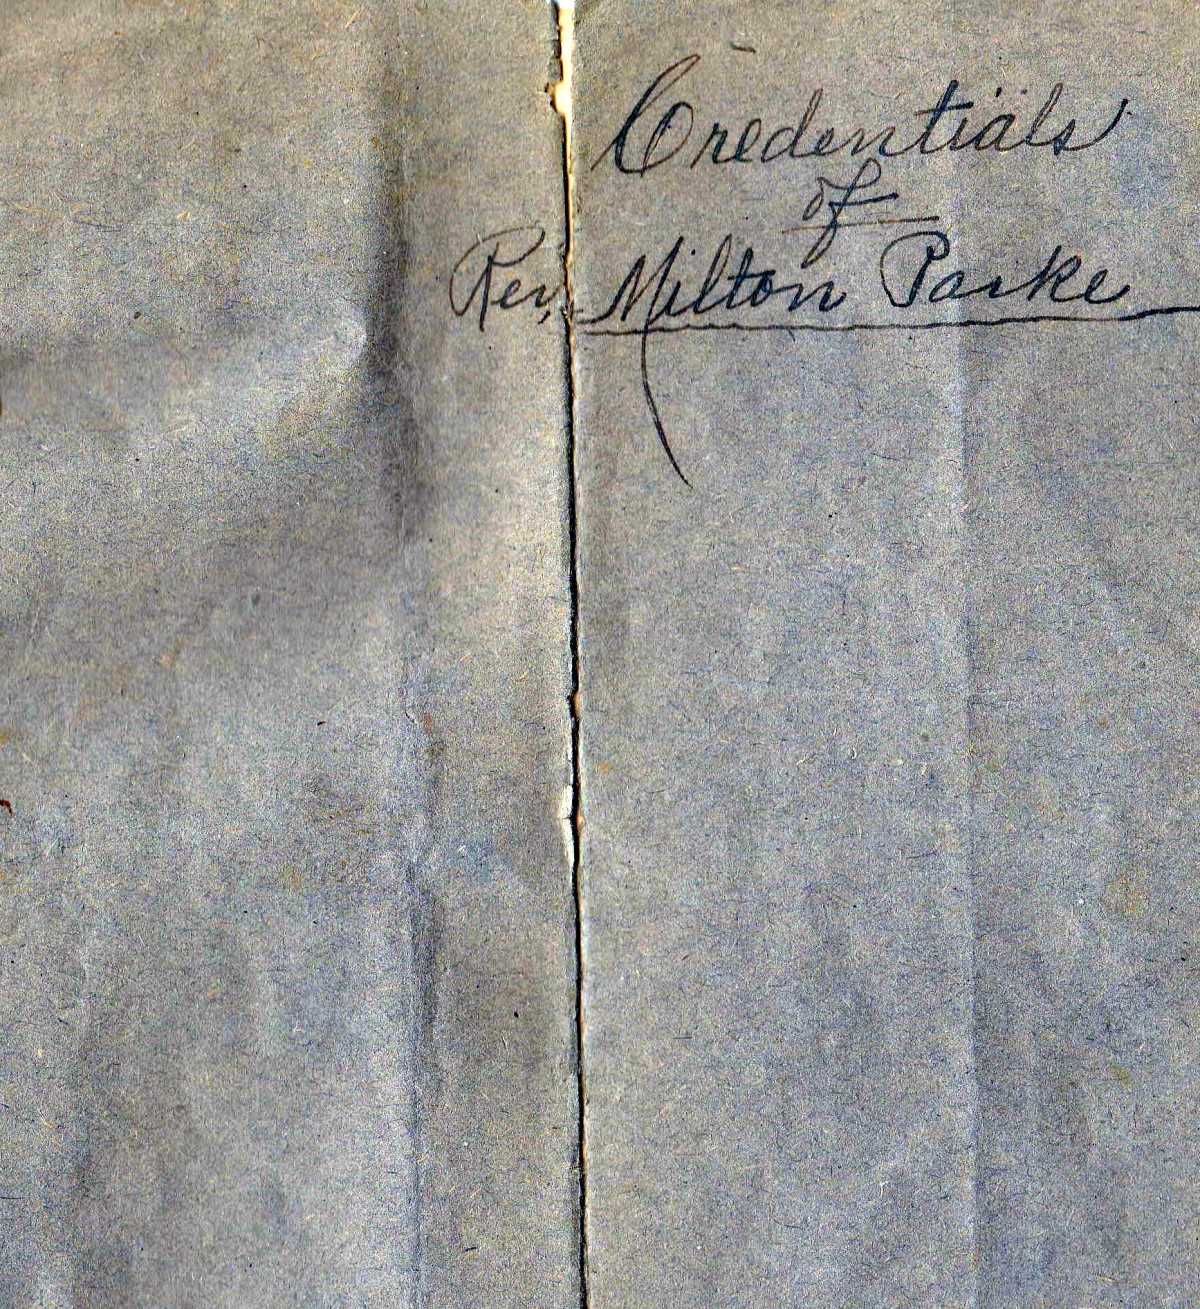 Credentials
of
Rev. Milton Parke